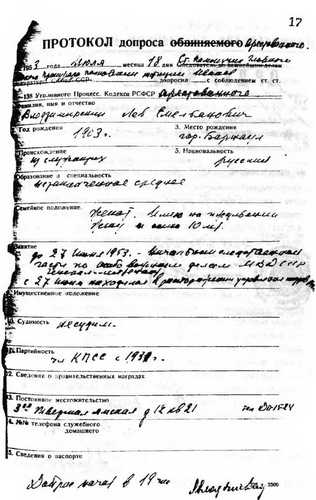 17
ПРОТОКОЛ допроса обвиняемого арестованного.
1953 года июля месяца 18 дня Ст. помощник Главного
военного прокурора
допросил с соблюдением ст. ст.
—138 Уголовного Процес. Кодекса РСФСР арестованного
Фамилия, имя и отчество
Влодзимирский Лев Емельянович
Год рождения
1903г.
3. Место рождения
гор. Барнаул
Происхождение
из служащих
5. Национальность
русский
Образование и специальность
незаконченное среднее
Семейное положение.
Женат. Имею на иждивении
жену и сына 10 лет.
Занятие
до 27 июня 1953г. - начальник следственной
части по особо важным делам МВД СССР
генерал-лейтенант
с 27 июня находился в распоряжении управления кадров
Имущественное положение
10. Судимость несудим.
11. Партийность
чл КПСС с 193
12. Сведения о правительственных наградах.
13. Постоянное местожительство
3ая Тверская Ямская д кв 21
4. №№ телефона служебного
домашнего
5. Сведения о паспорте
Допрос начат в 19 час